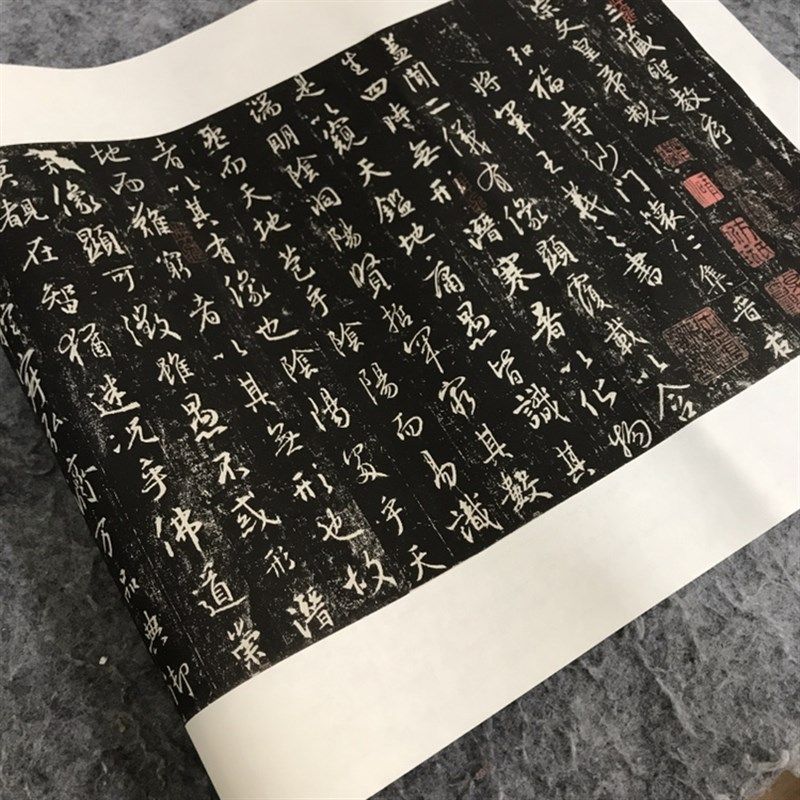 三藏聖教序
宗文皇帝製
弘福寺沙門懷仁集晉右
將軍王羲之書
蓋聞二儀有像顯覆載以含
生四時無形潛寒暑以化物
是以窺天鑑地庸愚皆識其
端明陰洞陽賢哲罕窮其數
然而天地苞乎陰陽而易識
者以其有像也陰陽處乎天
地而難窮者以其無形也故
像顯可徵雖愚不惑形潛
莫覩在智猶迷況乎佛道崇
寂弘濟万品典御